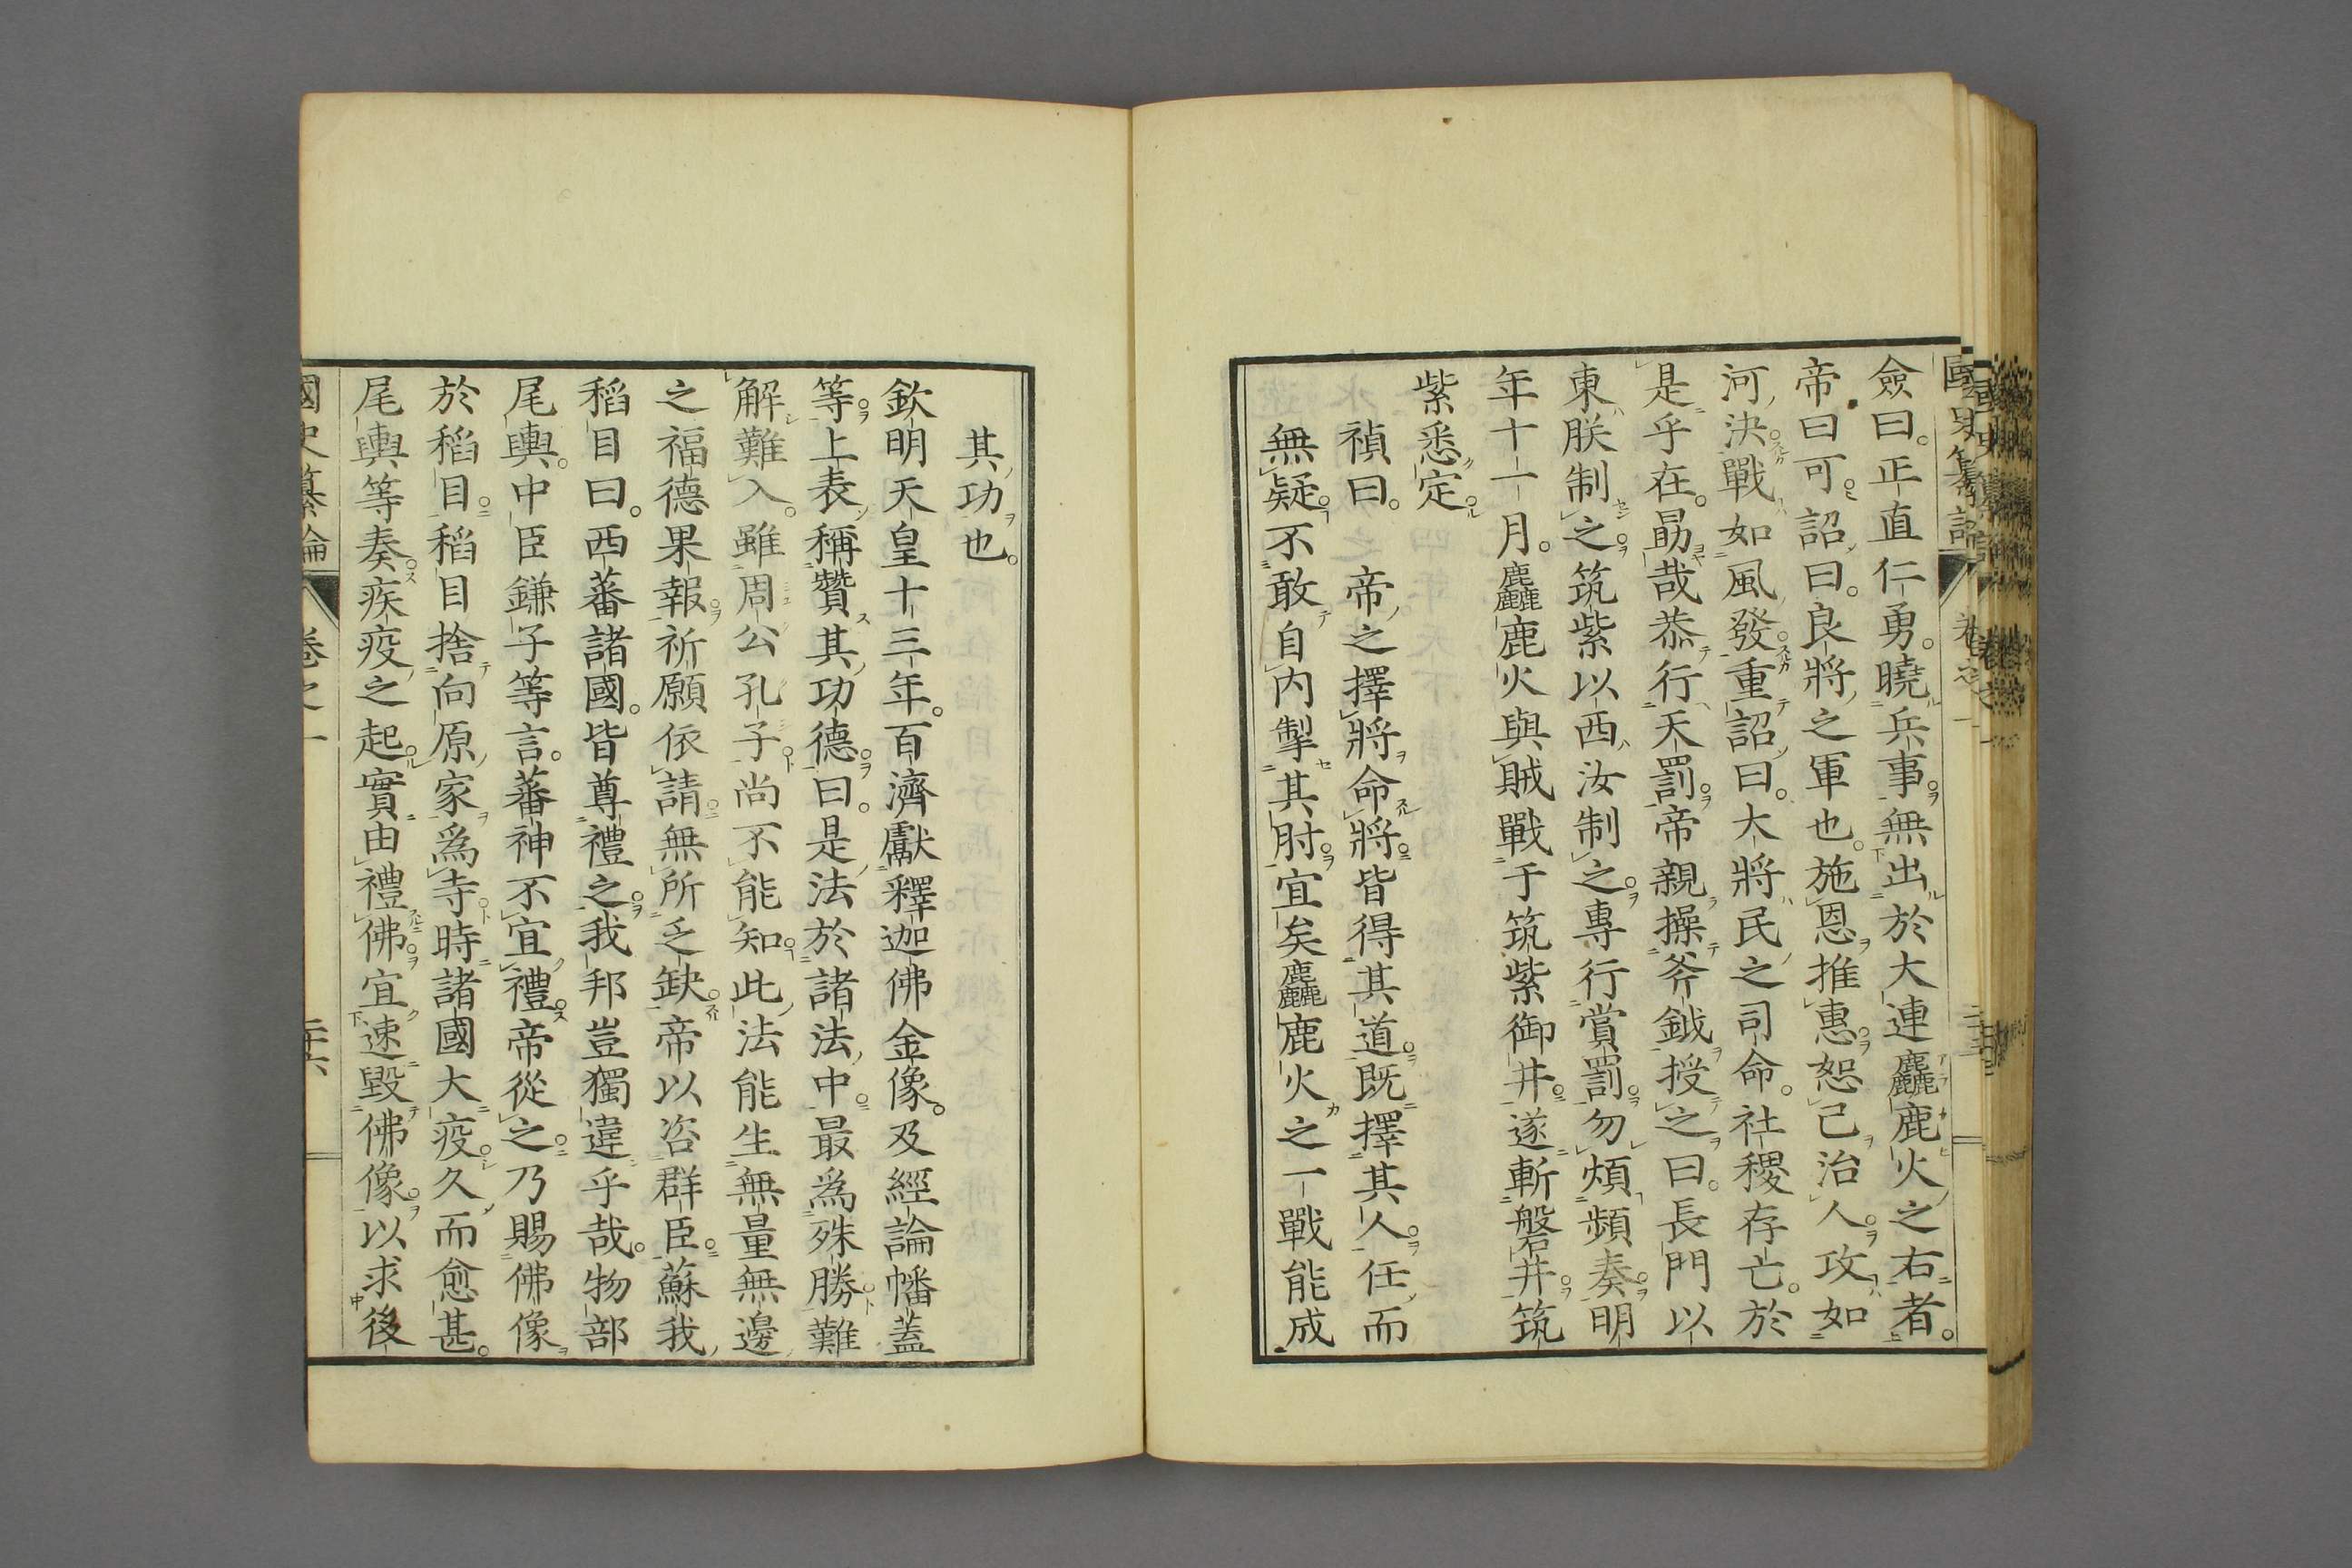 僉曰。正直仁勇。曉兵事。無出於大連麤鹿火之右者。
帝曰可。詔曰。良將之軍也。施恩推惠。恕己治人。攻如
河決。戰如風發。重詔曰。大將民之司命。社稷存亡。於
是乎在。勗哉恭行天罰。帝親操斧鉞授之曰。長門以
東朕制之。筑紫以西汝制之。專行賞罰。勿煩頻奏。明
年十一月。麤鹿火與賊戰于筑紫御井。遂斬磐井。筑
紫悉定。
禎曰。帝之擇將命將。皆得其道。既擇其人。任而
無疑。不敢自内掣其肘。宜矣麤鹿火之一戰能成
其功也。
欽明天皇十三年。百濟獻釋迦佛金像。及經論幡蓋
等。上表稱贊其功德。曰。是法於諸法中。最爲殊勝。難
解難入。雖周公孔子。尚不能知。此法能生無量無邊
之福德果報。祈願依請。無所乏缺。帝以咨群臣。蘇我
稻目曰。西蕃諸國。皆尊禮之。我邦豈獨違乎哉。物部
尾輿。中臣鎌子等言。蕃神不宜禮。帝從之。乃賜佛像
於稻目。稻目捨向原家爲寺。時諸國大疫。久而愈甚。
尾輿等奏疾疫之起。實由禮佛。宜速毀佛像。以求後
國史纂論 卷之一 二十六